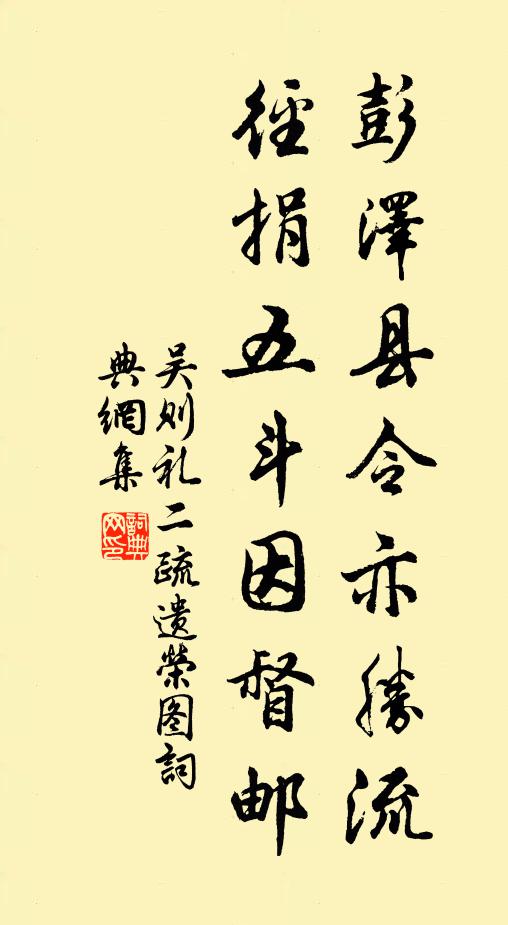 彭澤县令亦勝流
径捐五斗因督邮
吴则礼二疏遗榮图詞
典網集
詞典網印